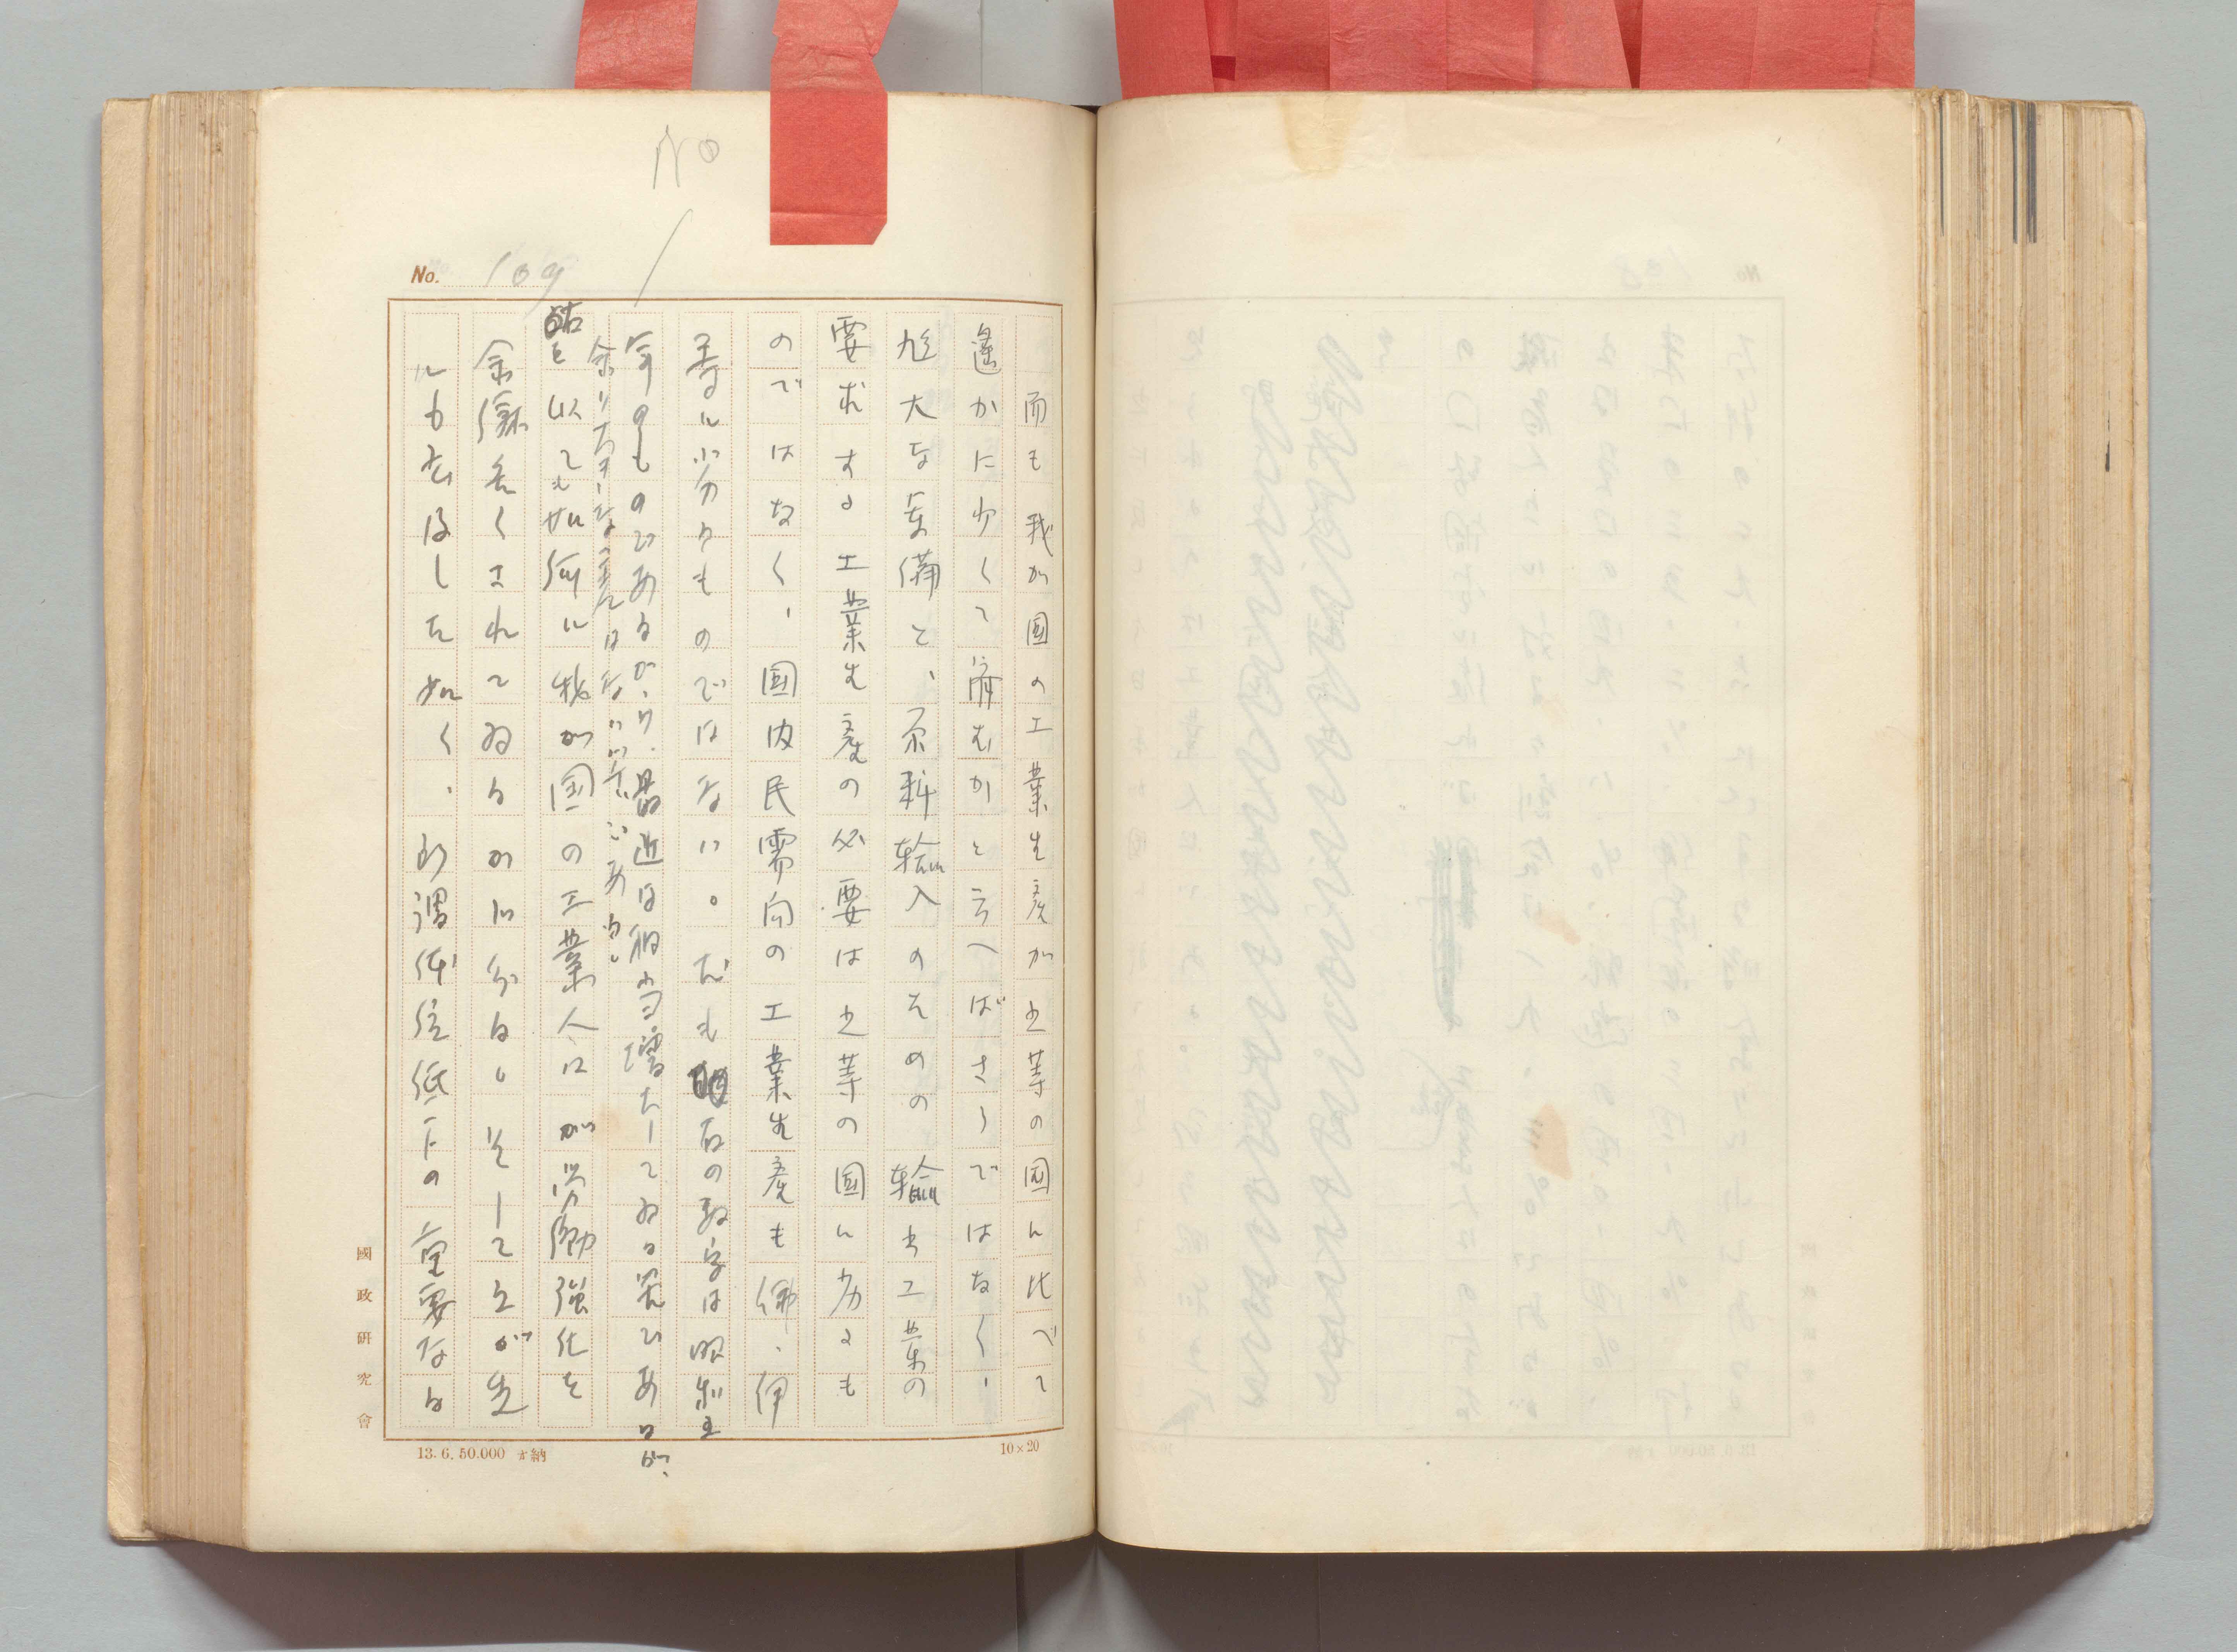 No
No. 109
而も我が國の工業生産が之等の國に比べて
遙かに少くて濟むかと言へばさうではなく、
尨大な軍備と、原料輸入のための輸出工業の
要求する工業生産の必要は之等の國に劣るも
のではなく、國内民需向の工業生産も佛、伊
等に劣るものではない。尤も右の数字は昭和
年のものであるから、最近は相当増大してゐる筈であるが、
余り大きな差はない筈である。
点を以ても如何に我が国の工業人口が労働強化を
余儀無くされてゐるかが分明しそして之が先
にも言及した如く、所謂体位低下の重要なる
國政研究會
13.6.50.000 納
10×20